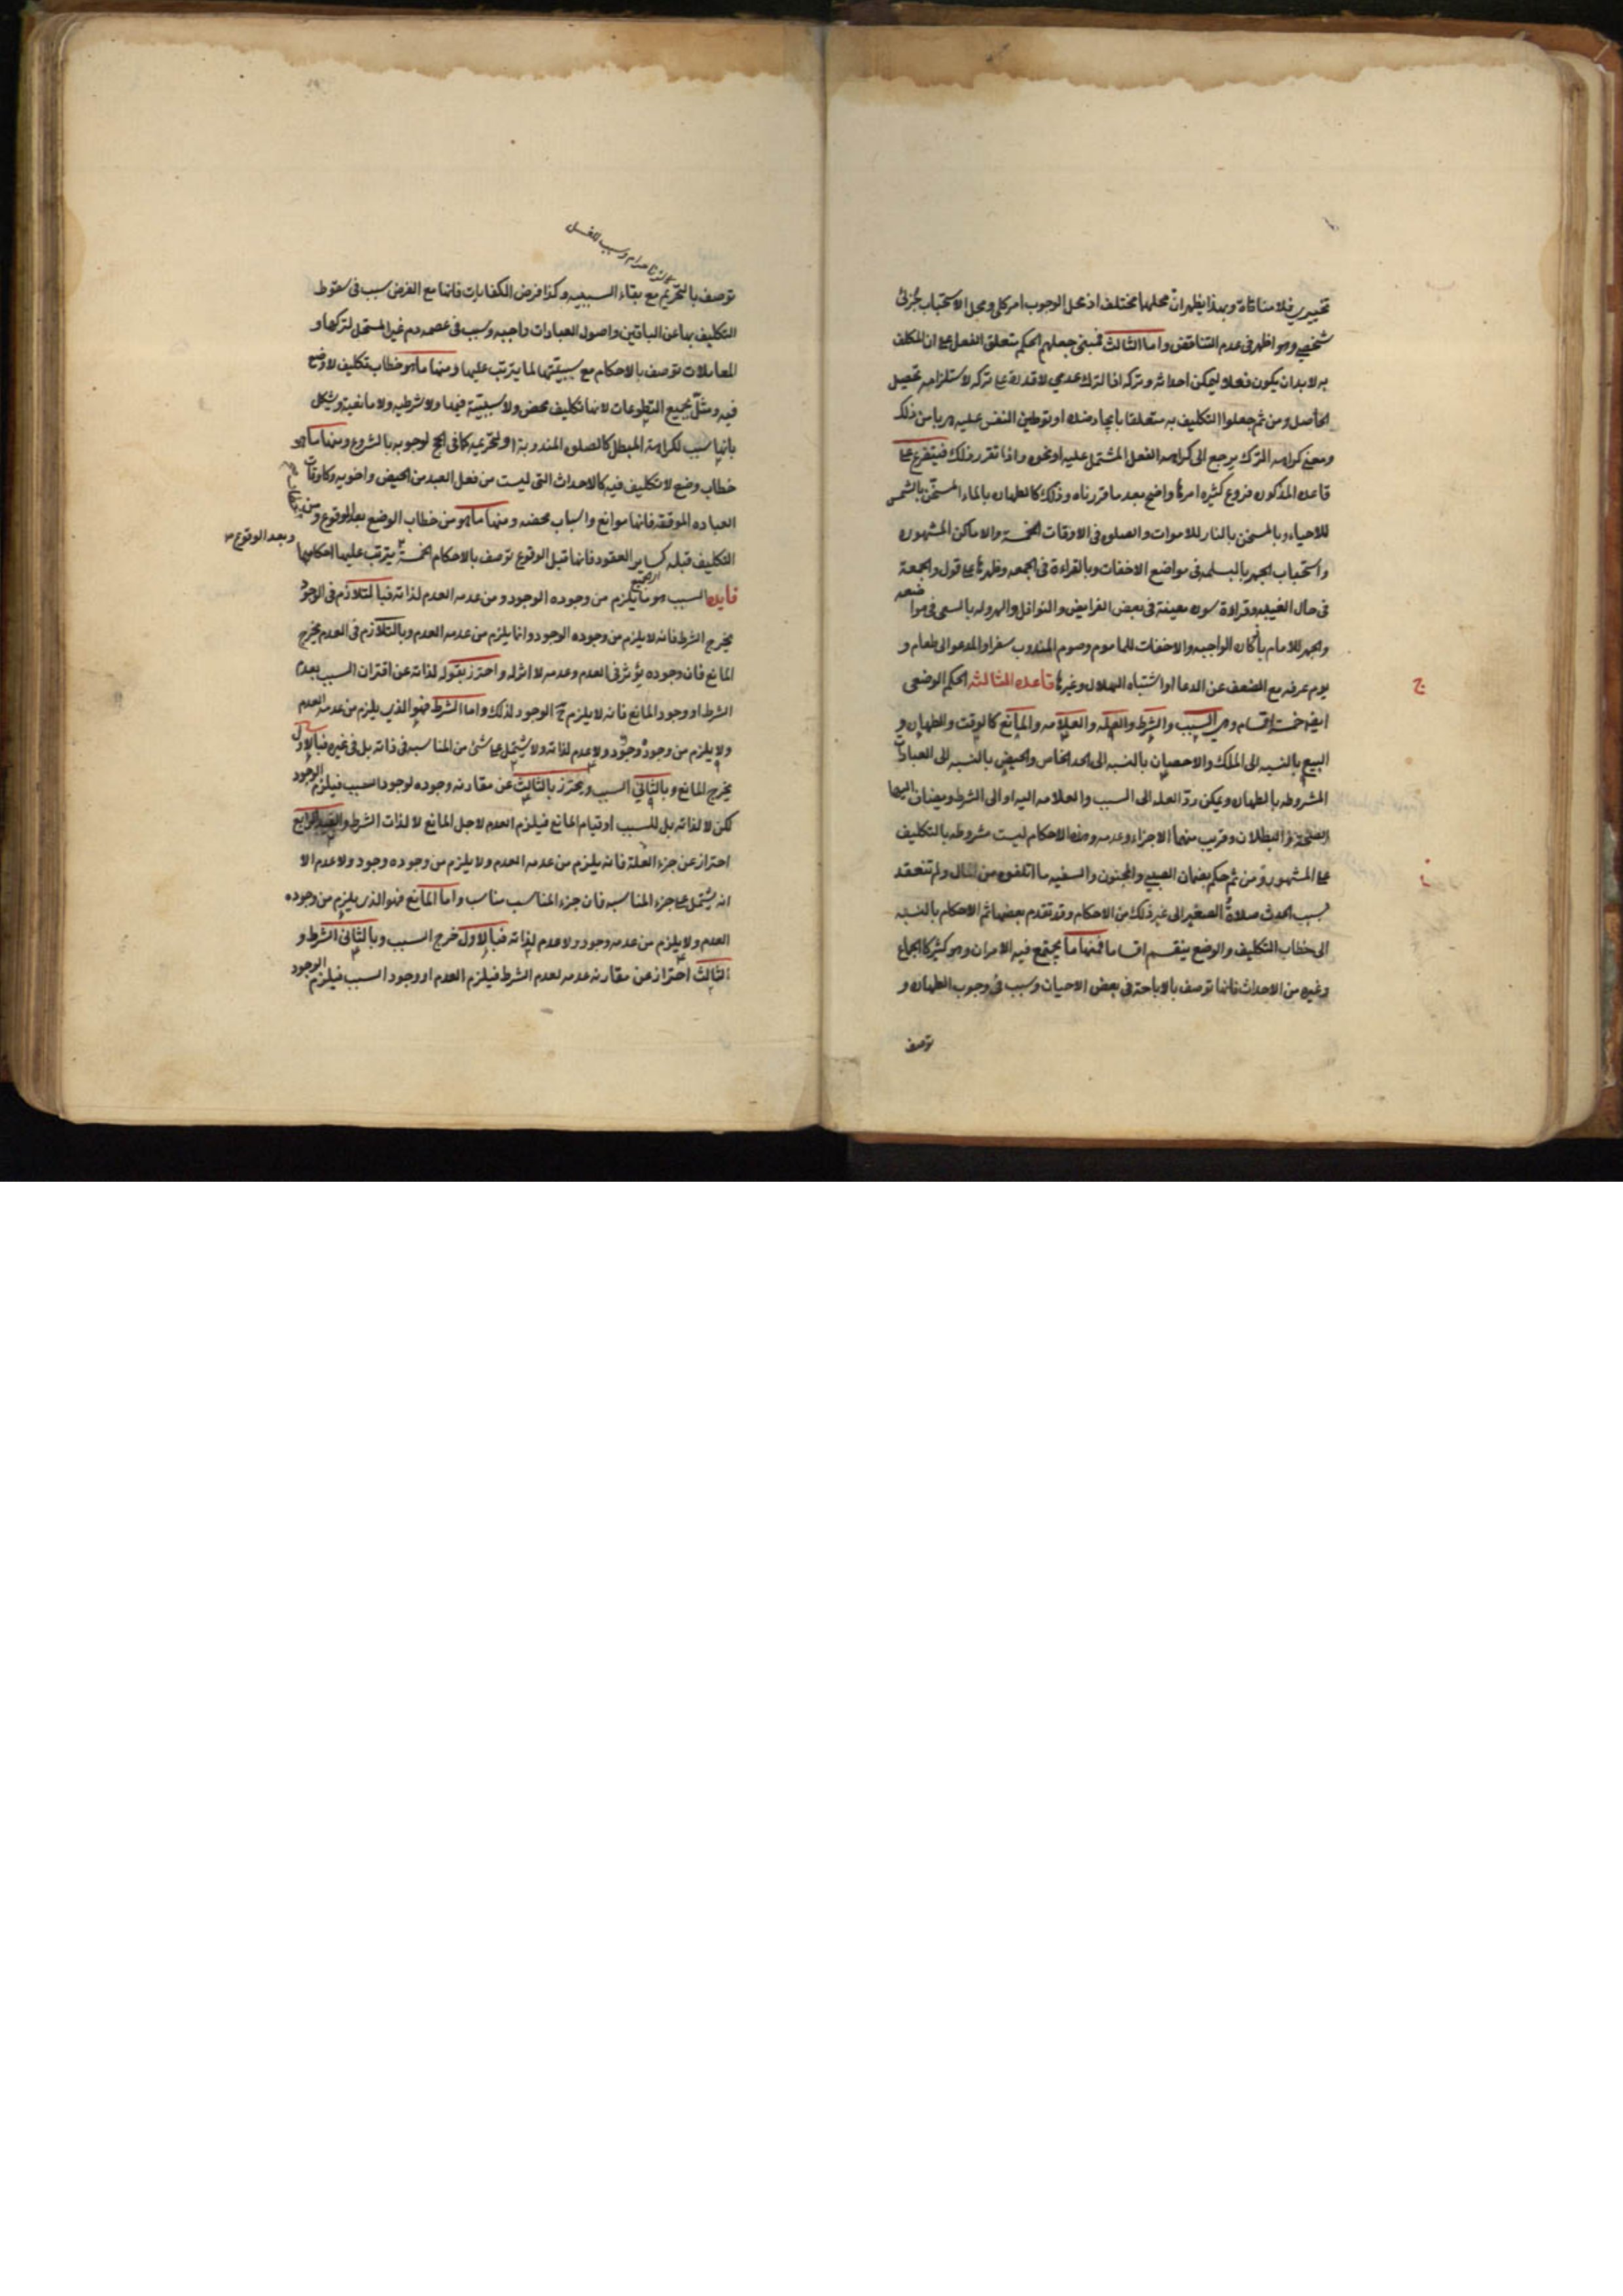 تخييري فلا منافاة وبهذا يظهر ان محلهما مختلف اذ محل الوجوب امر كلي ومحل الاستحباب جزئي
شخصي وهو اظهر في عدم التناقض واما الثالث فمبني جعلهم الحكم متعلق الفعل على ان المكلف
به لا بد ان يكون فعلا ليمكن احداثه وتركه اذ الترك عدمي لا قدرة على تركه لاستلزامه تحصيل
الحاصل ومن ثم جعلوا التكليف به متعلقا بايجاد ضده او توطين النفس عليه من ذلك
ومعنى كراهه الترك يرجع الى كراهه الفعل المشتمل عليه او نحوه واذا تقرر ذلك فيتفرع على
قاعده المذكوره فروع كثيره امرها واضح بعد ما قررناه وذلك كالطهاره بالماء المسخن بالشمس
للاحياء وبالمسخن بالنار للاموات والصلوه في الاوقات الخمسة والاماكن المشهوره
واستحباب الجهر بالبسمله في مواضع الاخفات وبالقراءة في الجمعه وظهرها على قول والجمعة
في حال الغيبه وقراءة سوره معينة في بعض الفرايض والنوافل والهروله بالسعي في مواضعه
والجهر للامام باذكاره الواجبه والاخفات للماموم وصوم المندوب سفرا والمدعو الى طعام و
يوم عرفه مع الضعف عن الدعا او اشتباه الهلال وغيرها قاعده الثالثه الحكم الوضعي
ج
ايضا خمسة اقسام وهي السبب والشرط والعله والعلامه والمانع كالوقت والطهاره و
البيع بالنسبه الى الملك والاحصان بالنسبه الى الحد الخاص والحيض بالنسبه الى العبادات
المشروطه بالطهاره ويمكن رد العله الى السبب والعلامه اليه او الى الشرط ويضاف اليها
الصحة والبطلان وقريب منهما الاجزاء وعدمه وهذه الاحكام ليست مشروطه بالتكليف
على المشهور ومن ثم حكم بضمان الصبي والمجنون والسفيه ما اتلفوه من المال ولم تنعقد
بسبب الحدث صلاة الصغير الى غير ذلك من الاحكام وقد تقدم بعضها ثم الاحكام بالنسبه
الى خطاب التكليف والوضع ينقسم اقساما فمنها ما يجتمع فيه الامران وهو كثير كالجماع
وغيره من الاحداث فانها توصف بالاباحة في بعض الاحيان وسبب في وجوب الطهاره و
توصف
كالزنا حرام وسبب للغسل
توصف بالتحريم مع بقاء السببيه وكذا فرض الكفايات فانها مع الفرض سبب في سقوط
التكليف بها عن الباقين واصول العبادات واجبه وسبب في عصمه دم غير المستحل لتركها و
المعاملات توصف بالاحكام مع سببيتها لما يترتب عليها ومنها ما هو خطاب تكليف لا وضع
فيه ومثل بجميع التطوعات لانها تكليف محض ولا سببية فيها ولا شرطيه ولا مانعية ويشكل
بانها سبب لكراهة المبطل كالصلوه المندوبة او لتحريمه كما في الحج لوجوبه بالشروع ومنها ما هو
خطاب وضع لا تكليف فيه كالاحداث التي ليست من فعل العبد من الحيض واخويه وكاوقات
العباده الموقته فانها موانع واسباب محضه ومنها ما هو من خطاب الوضع بعد الوقوع ومن
التكليف قبله كساير العقود فانها قبل الوقوع توصف بالاحكام الخمسة يترتب عليها احكامها
وبعد الوقوع
فايده السبب هو ما يلزم من وجوده الوجود ومن عدمه العدم لذاته فبالتلازم في الوجود
يخرج الشرط فانه لا يلزم من وجوده الوجود وانما يلزم من عدمه العدم وبالتلازم في العدم يخرج
المانع فان وجوده يؤثر في العدم وعدمه لا اثر له واحترز بقوله لذاته عن اقتران السبب بعدم
الشرط او وجود المانع فانه لا يلزم ح الوجود لذلك واما الشرط فهو الذي يلزم من عدمه العدم
ولا يلزم من وجوده وجود ولا عدم لذاته ولا يشتمل على شئ من المناسبه في ذاته بل في غيره فبالاول
يخرج المانع وبالثاني السبب ويحترز بالثالث عن مقارنه وجوده لوجود السبب فيلزم الوجود
لكن لا لذاته بل للسبب او قيام المانع فيلزم العدم لاجل المانع لا لذات الشرط والقيد الرابع
احتراز عن جزء العلة فانه يلزم من عدمه العدم ولا يلزم من وجوده وجود ولا عدم الا
انه يشتمل على جزء المناسبه فان جزء المناسب مناسب واما المانع فهو الذي يلزم من وجوده
العدم ولا يلزم من عدمه وجود ولا عدم لذاته فبالاول خرج السبب وبالثاني الشرط و
الثالث احتراز عن مقارنه عدمه لعدم الشرط فيلزم العدم او وجود السبب فيلزم الوجود